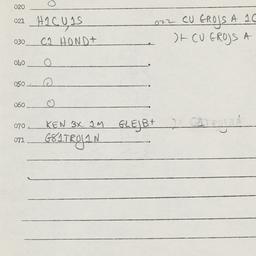 020 O
021 H1CU,1S 022 CU GROJS A 1C
030 C1 HOND+ )+ CU GROJS A
040 O
050 O
060 O
070 KEN 3X 1M GLEJB+
071 G81TROJ1N